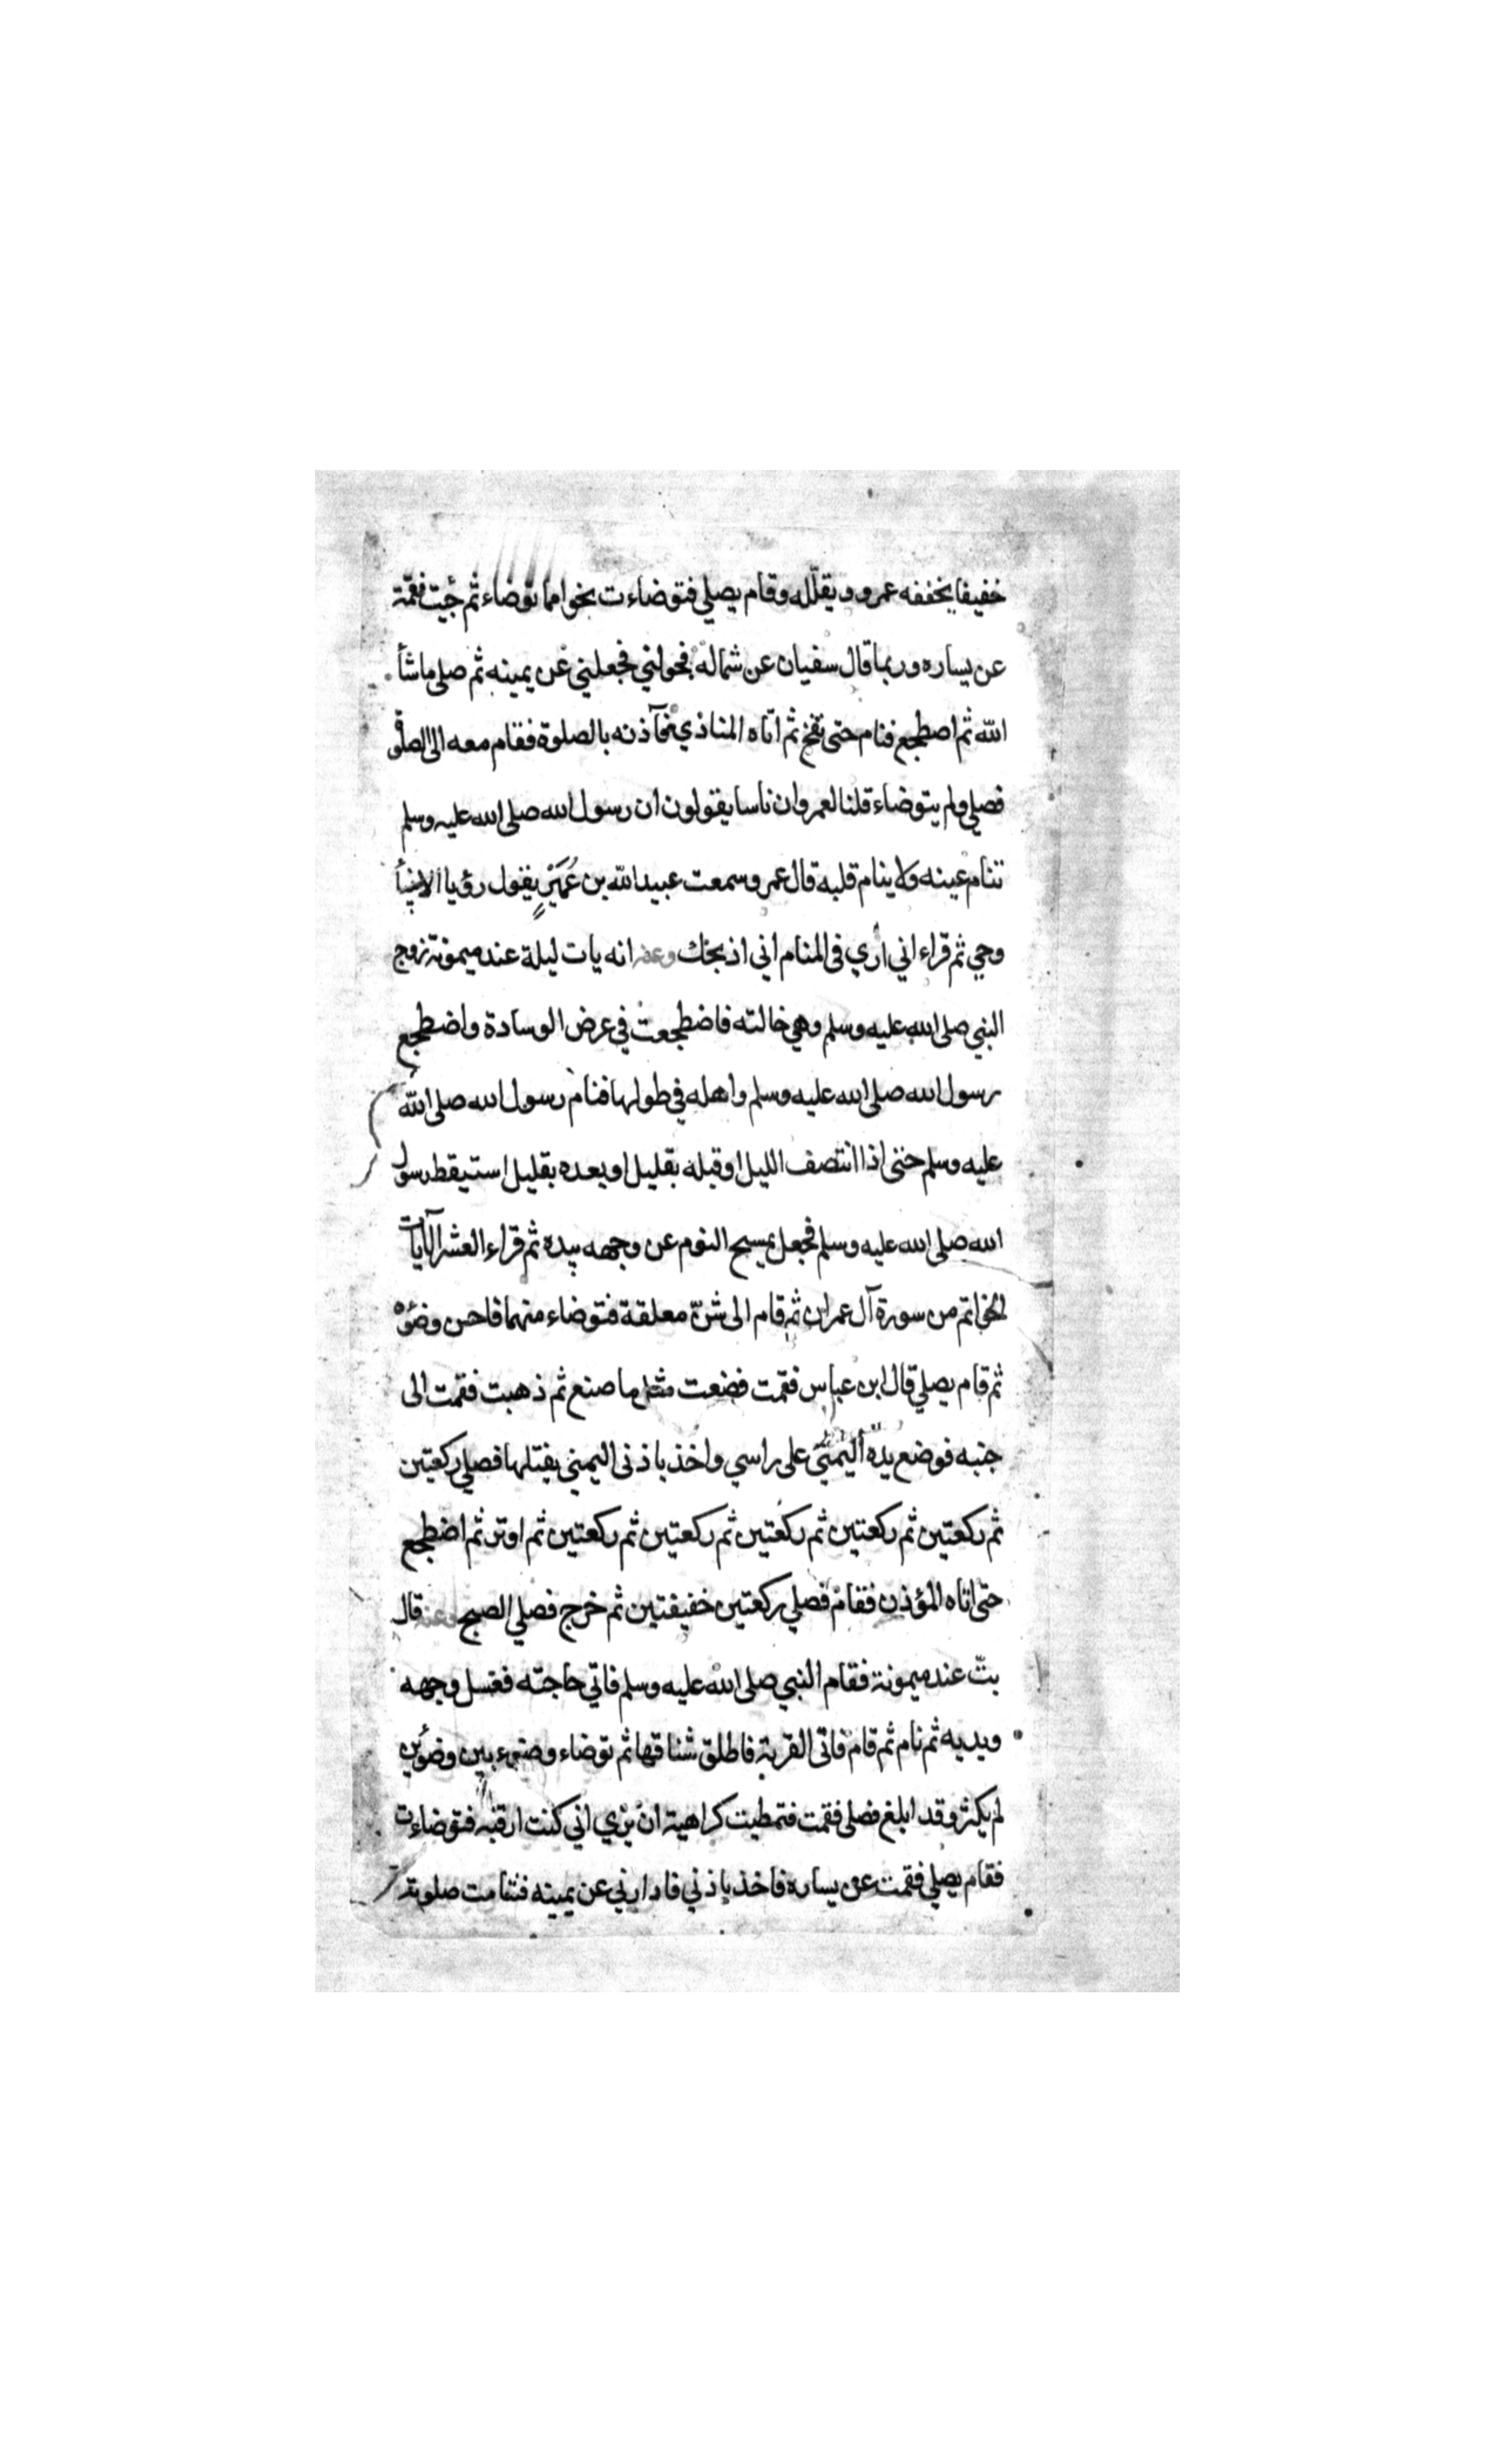 خفيفا يخففه عمرو ويقلله وقام يصلي فتوضاءت نحوا مما توضاء ثم جئت فقمت
عن يساره وربما قال سفيان عن شماله فحولني فجعلني عن يمينه ثم صلى ماشأ
الله ثم اضطجع فنام حتى نفخ ثم اتاه المنادي فآذنه بالصلوة فقام معه الى الصلوة
فصلى ولم يتوضاء قلنا لعمرو ان ناسا يقولون ان رسول الله صلى الله عليه وسلم
تنام عينه ولا ينام قلبه قال عمرو سمعت عبيد الله بن عُمَيْرٍ يقول رؤيا الانبيأ
وحي ثم قراء اني أري في المنام اني اذبحك وعنه انه بات ليلة عند ميمونة زوج
النبي صلى الله عليه وسلم وهي خالته فاضطجعت في عرض الوسادة واضطجع
رسول الله صلى الله عليه وسلم واهله في طولها فنام رسول الله صلى الله
عليه وسلم حتى اذا انتصف الليل او قبله بقليل او بعده بقليل استيقط رسول
الله صلى الله عليه وسلم فجعل يمسح النوم عن وجهه بيده ثم قراء العشر الآيات
الخواتم من سورة آل عمران ثم قام الى شنّ معلقة فتوضاء منهما فاحسن وضوئه
ثم قام يصلي قال ابن عباس فقمت فضعت مثل ما صنع ثم ذهبت فقمت الى
جنبه فوضع يده اليمنى على راسي واخذ باذنى اليمني يفتلها فصلي ركعتين
ثم ركعتين ثم ركعتين ثم ركعتين ثم ركعتين ثم ركعتين ثم اوتر ثم اضطجع
حتى اتاه المؤذن فقام فصلي ركعتين خفيفتين ثم خرج فصلي الصبح وعنه قال
بتّ عند ميمونة فقام النبي صلى الله عليه وسلم فاتي حاجته فغسل وجهه
ويديه ثم نام ثم قام فاتى القربة فاطلق شناقها ثم توضاء وضوء بين وضوئين
لم يكثر وقد ابلغ فصلى فقمت فتمطيت كراهية ان يري اني كنت ارقبه فتوضاءت
فقام يصلي فقمت عن يساره فاخذ باذني فادارني عن يمينه فتتامت صلوته